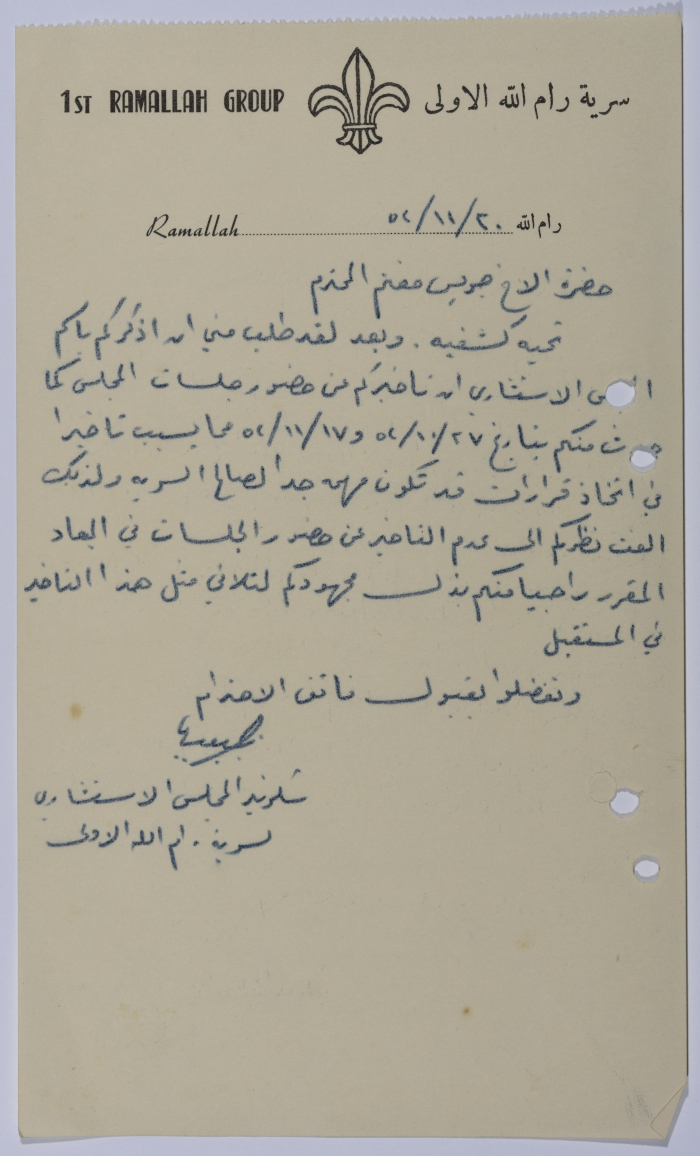 1ST RAMALLAH GROUP سرية رام الله الاولى
Ramallah رام الله ٥٢/١١/٢٠
حضرة الاخ مغنم المحترم
تحيه كشفيه . وبعد لقد طلب مني ان اذكركم بأن
الاستشاري ان تأخيركم عن حضور جلسات المجلس كما
منكم بتاريخ ٥٢/١٠/٢٧ و ٥٢/١١/١٧ مما يسبب تاخيرا
في اتخاذ قرارات قد تكون مهمه جدا لصالح السريه ولذلك
الفت نظركم الى عدم التاخير عن حضور الجلسات في المعاد
المقرر راجيا منكم بذل مجهودكم لتلافي مثل هذا التاخير
في المستقبل
وتفضلوا بقبول فائق الاحترام
المجلس الاستشاري
لسرية رام الله الاولى